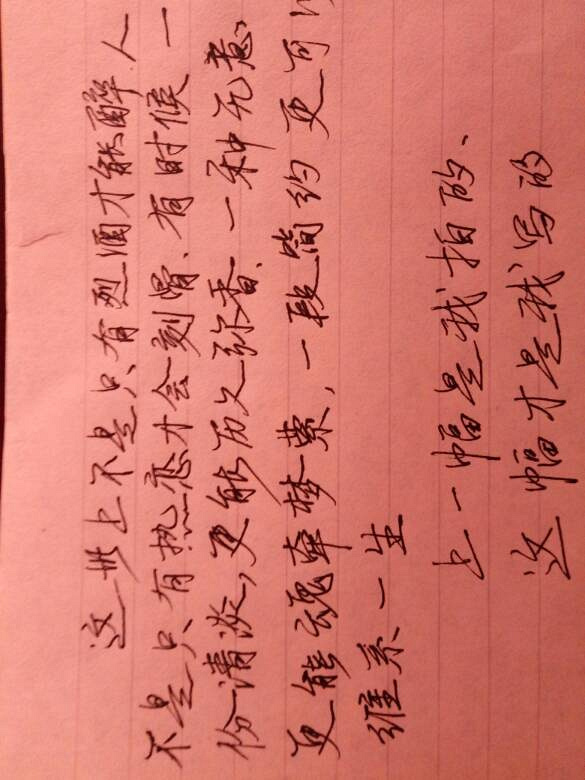 这世上不是只有烈酒才能醉人
不是只有热恋才会刻骨、有时候一
份清淡,更能历久弥香、一种无意、
更能魂牵梦萦,一段简约更可以
维系一生
上一幅是我拍的、
这幅才是我写的